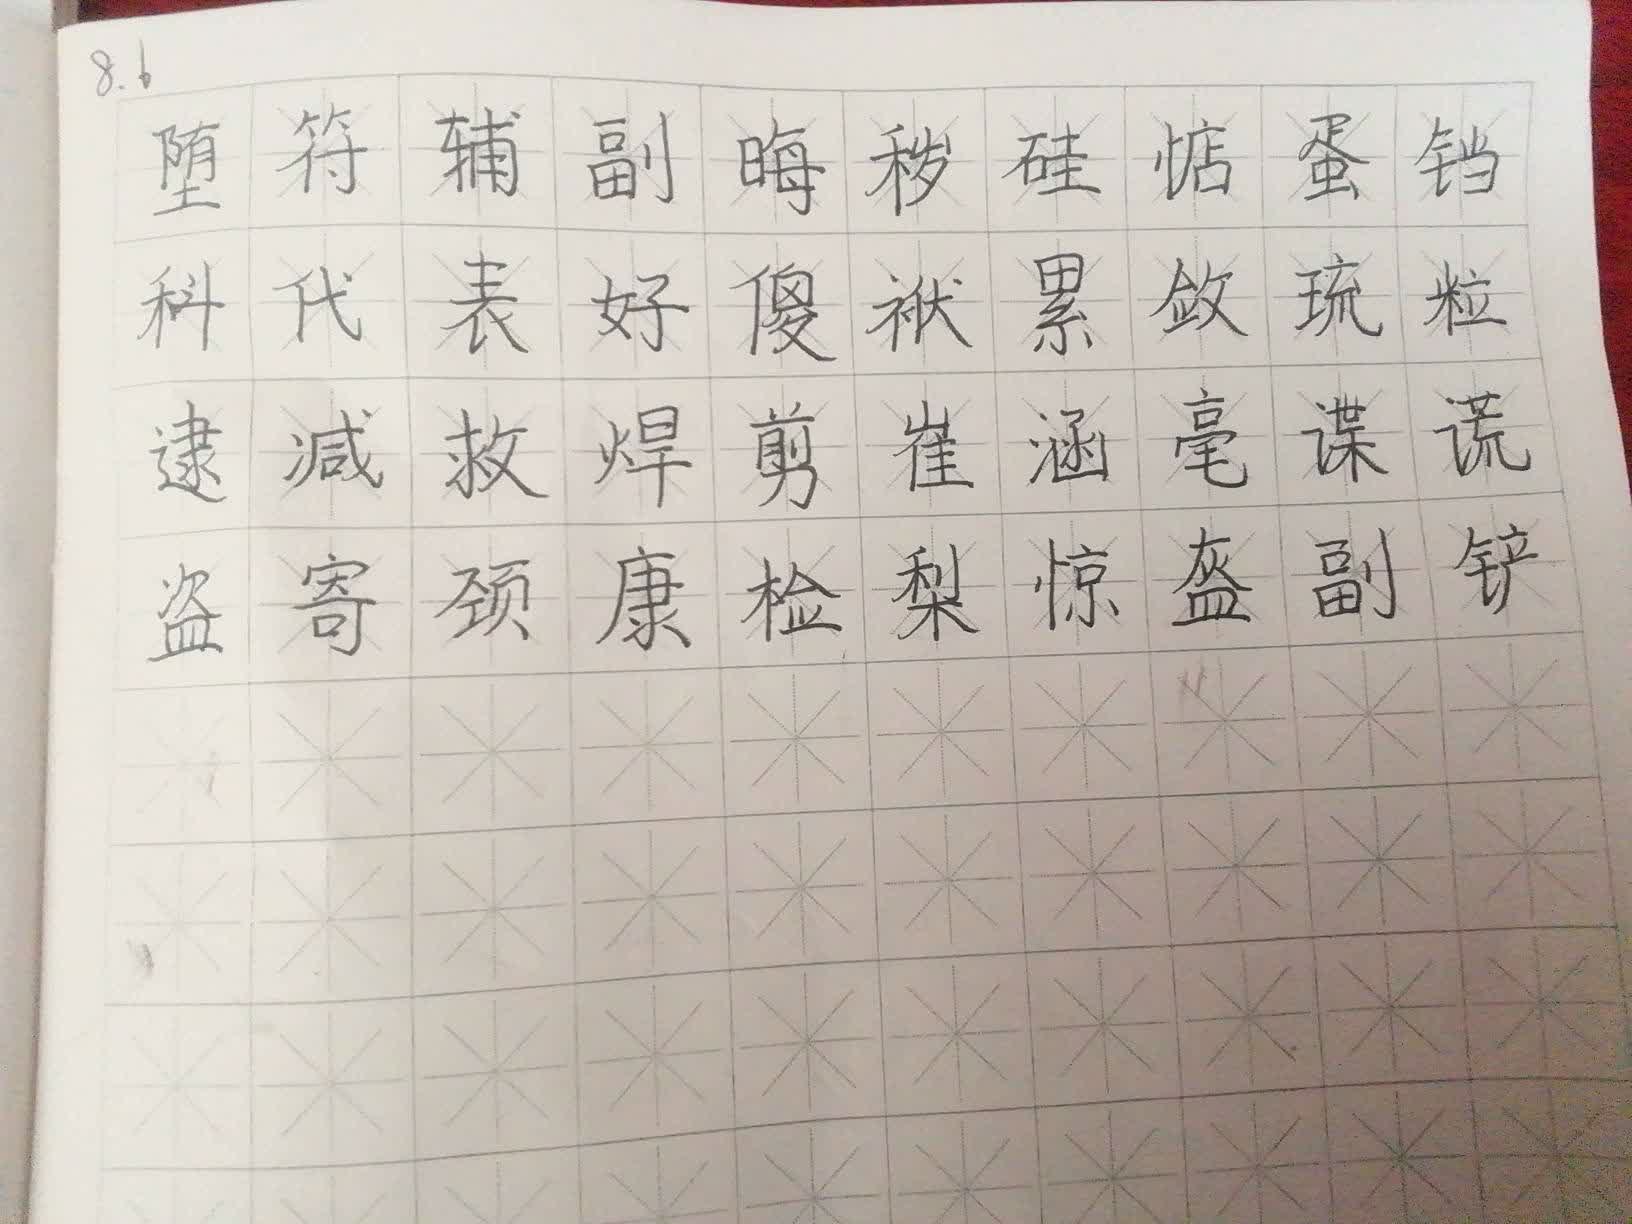 8.6
堕符辅副晦秽硅惦蛋铛
科代表好傻袱累敛琉粒
逮减救焊剪崔涵毫谍谎
盗寄颈康检梨惊盔副铲